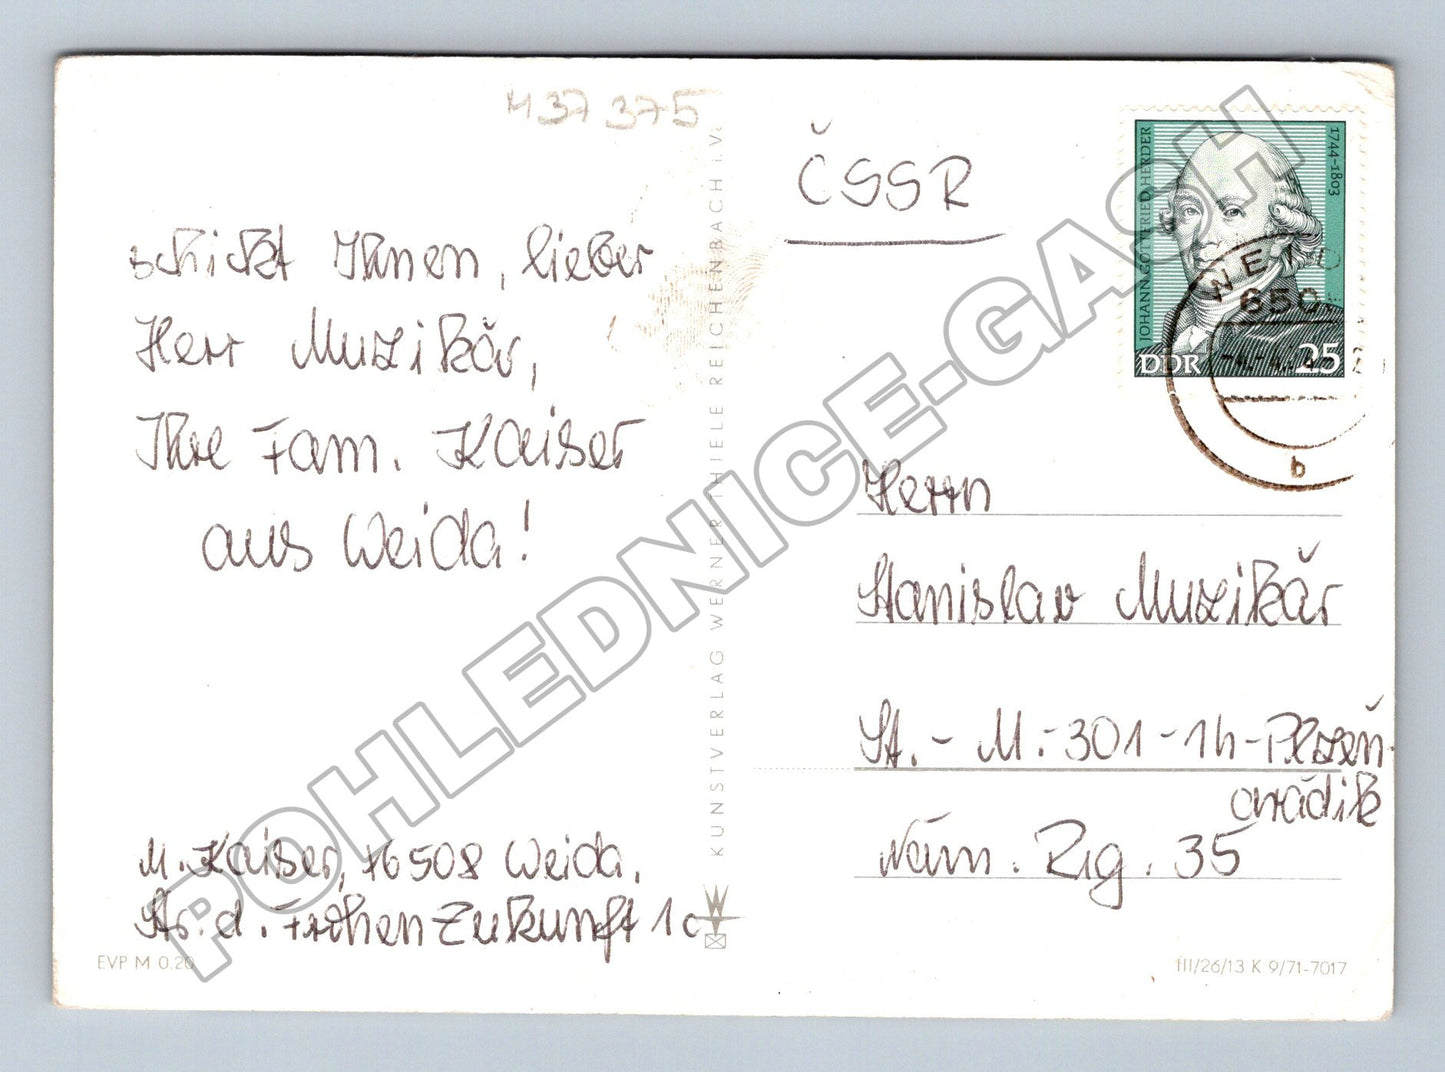 437 375
schickt Ihnen, lieber
Herr Muzikář,
Ihre Fam. Kaiser
aus Weida!
M. Kaiser, 6508 Weida,
Str. d. Frohen Zukunft 1c
EVP M 0,20
KUNSTVERLAG WERNER THIELE REICHENBACH i. V.
ČSSR
JOHANN GOTTFRIED HERDER
1744-1803
DDR
25
650
b
Herrn
Stanislav Muzikář
St. - M. - 301 - 14 - Plzeň-
Nám. Rig. 35
III/26/13 K 9/71-7017
POHLEDNICE-GASH